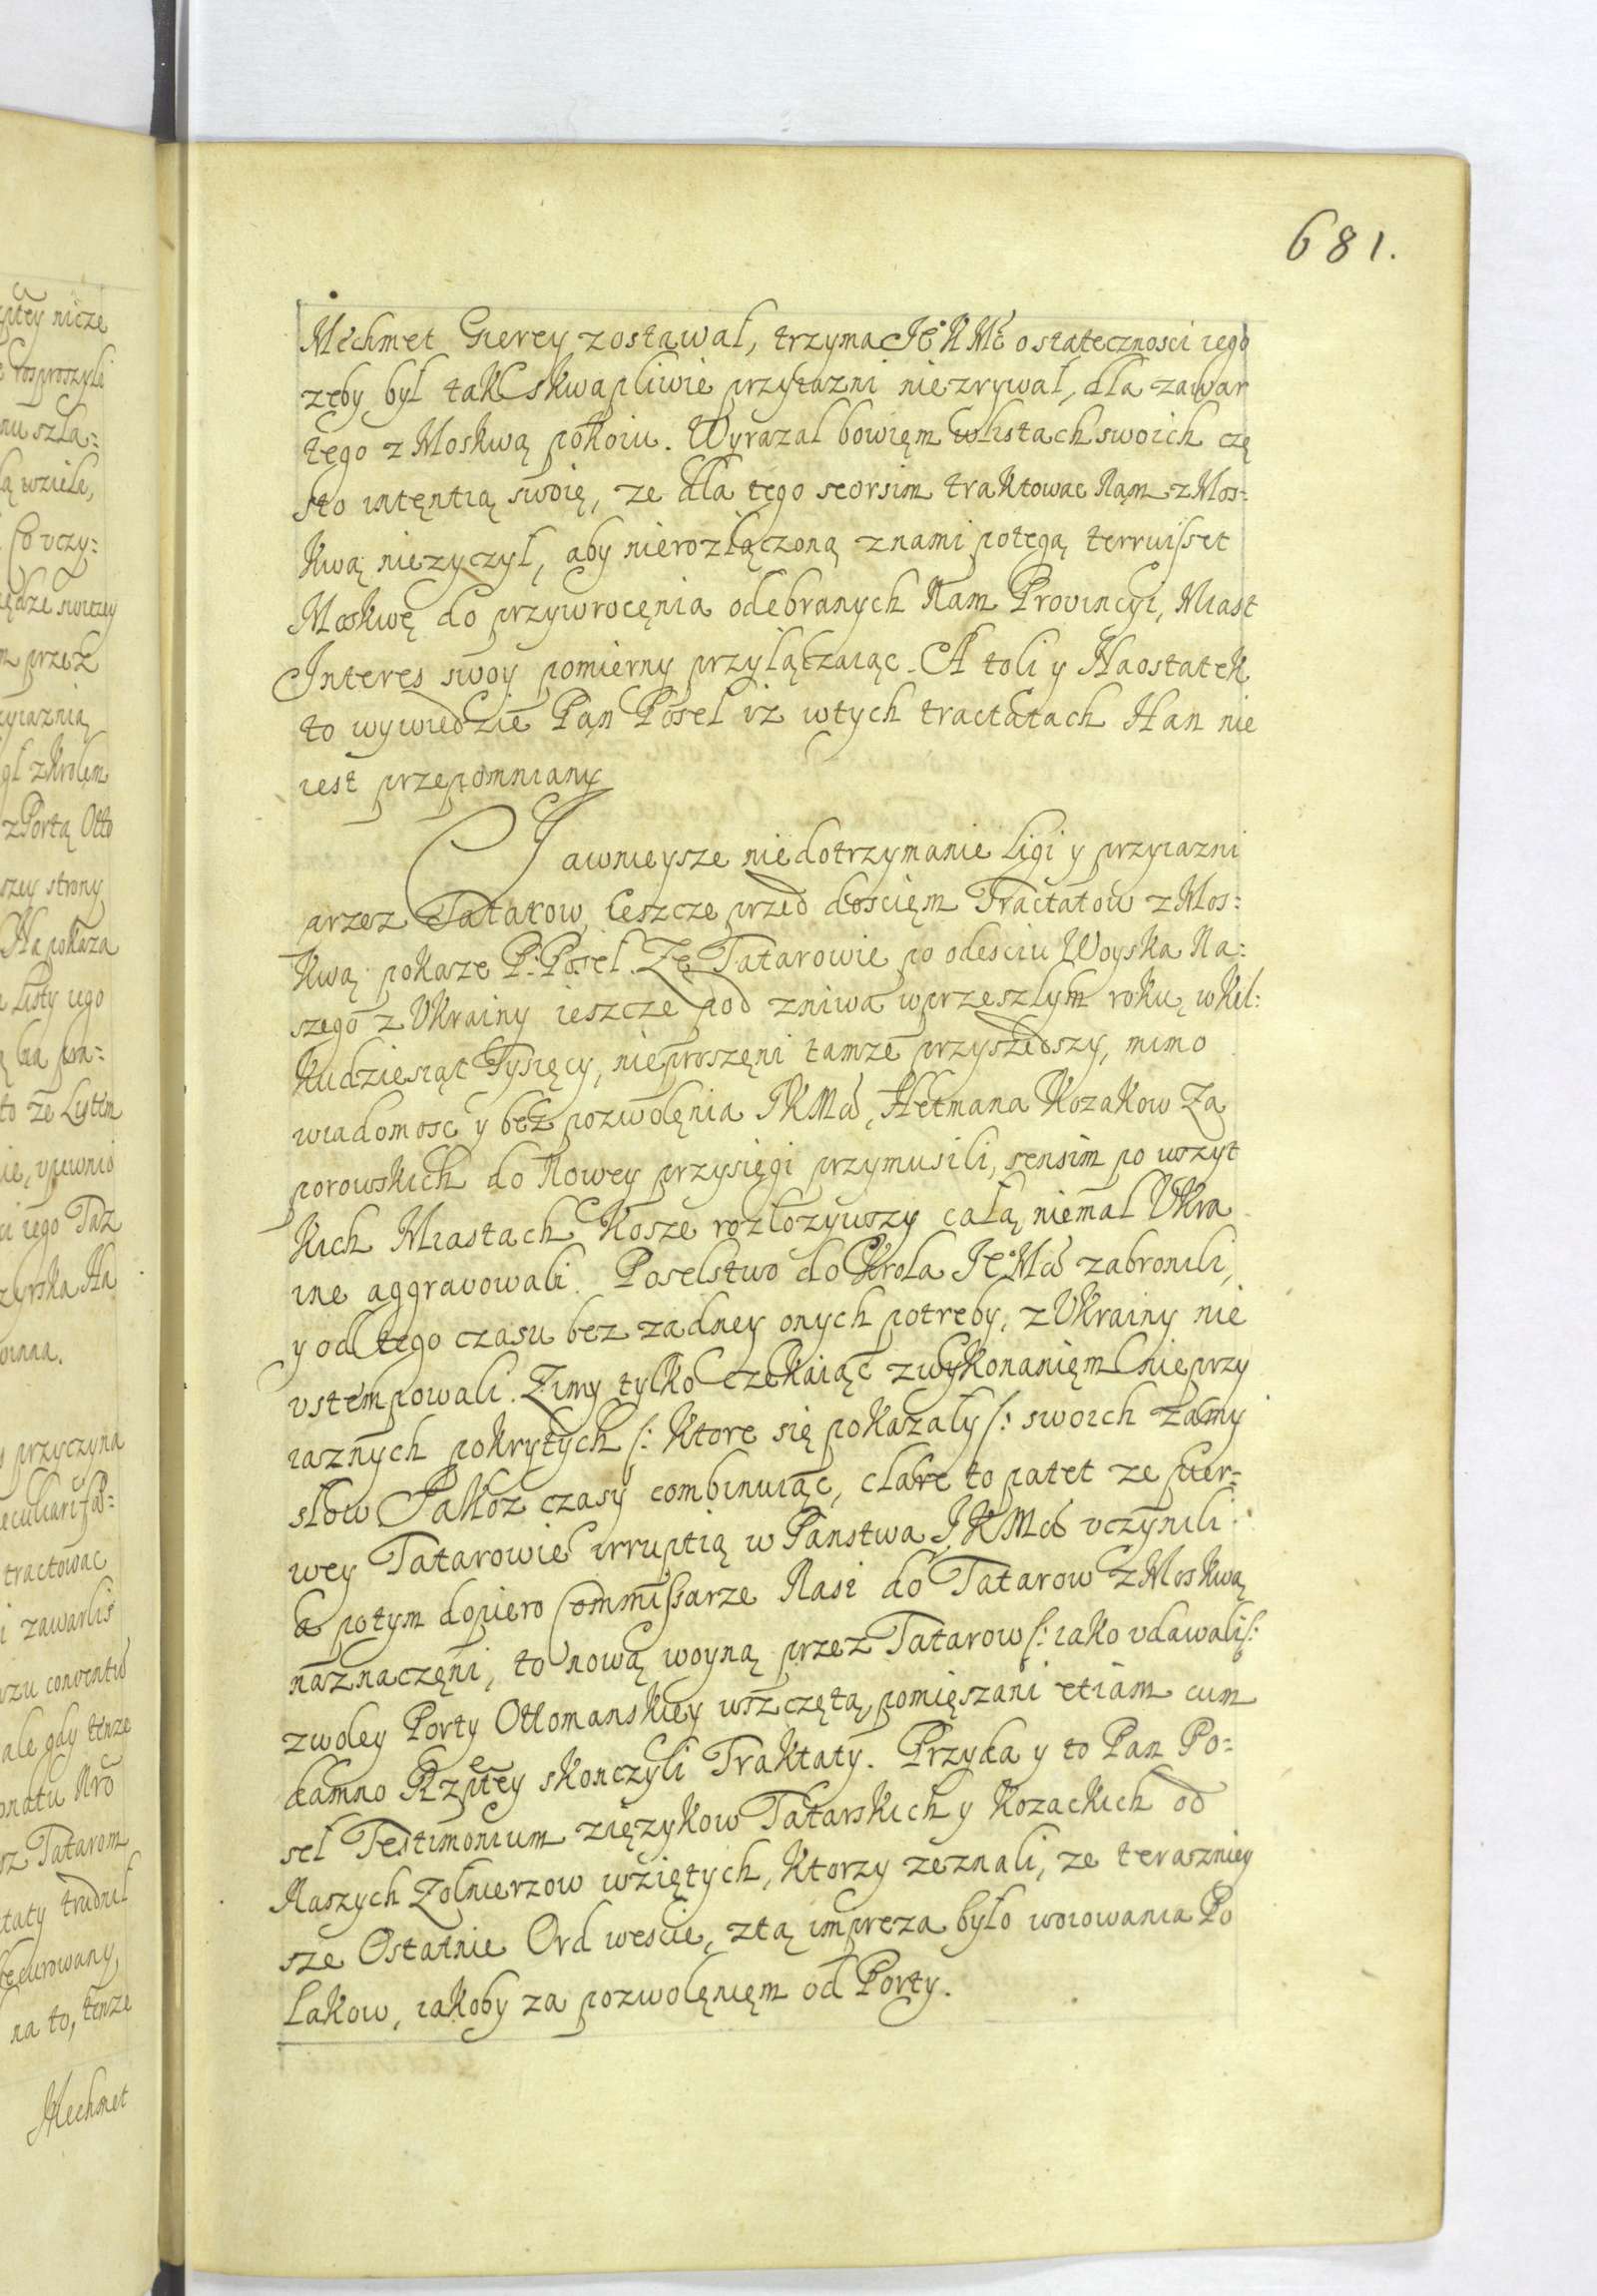 681.
Mechmet Gierey zostawał, trzyma Je° K Mć o stateczności iego
zeby był tak skwapliwie przyiazni niezrywał, dla zawar
tego z Moskwą pokoiu. Wyrazał bowięm w listach swoich czę
sto intęntią swoię, ze dla tego seorsim traktowac Nąm z Mos=
kwą niezyczył, aby nierozłączoną znami potęgą terruisset
Moskwę do przywrocęnia odebranych Nam Provincyi, Miast
Interes swoy pomierny przyłączaiąc. A toli y Naostatek
to wywiedzie Pan Poseł iż wtych tractatach Han nie
iest przepomniany
Jawnieysze niedotrzymanie Ligi y przyiazni
przez Tatarow, Ieszcze przed dościęm Tractatow z Mos=
kwą pokaze P: Poseł. Ze Tatarowie po odesciu Woyska Na=
szego z Ukrainy ieszcze pod zniwa wprzeszłym roku, w kil=
kudziesiąt Tysięcy, nieproszęni tamze przyszedszy, mimo
wiadomosc y bez pozwolęnia J K Mci, Hetmana Kozakow Za
porowskich do Nowey przysięgi przymusili, sensim po wszyt
kich Miastach Kosze rozłozywszy całą niemal Ukra
ine aggravowali. Poselstwo do Krola Je° Mci zabronili,
y od tego czasu bez zadney onych potreby, z Ukrainy nie
ustempowali. Zimy tylko czekaiąc z wykonanięm nieprzy
iaznych pokrytych /: ktore się pokazały /: swoich zamy
słow Jakoz czasy combinuiąc, clare to patet ze pier=
wey Tatarowie irruptią w Panstwa J K Mci uczynili
a potym dopiero Commissarze Nasi do Tatarow z Moskwą
naznaczęni, to nową woyną przez Tatarow /: iako udawali /:
zwoley Porty Ottomanskiey wszczętą, pomięszani etiam cum
damno Rzptey skonczyli Traktaty. Przyda y to Pan Po=
seł Testimonium zięzykow Tatarskich y Kozackich od
Naszych Zołnierzow wziętych, ktorzy zeznali, ze terazniey
sze Ostatnie Ord weście, ztą impreza było woiowania Po
lakow, iakoby za pozwolęnięm od Porty.